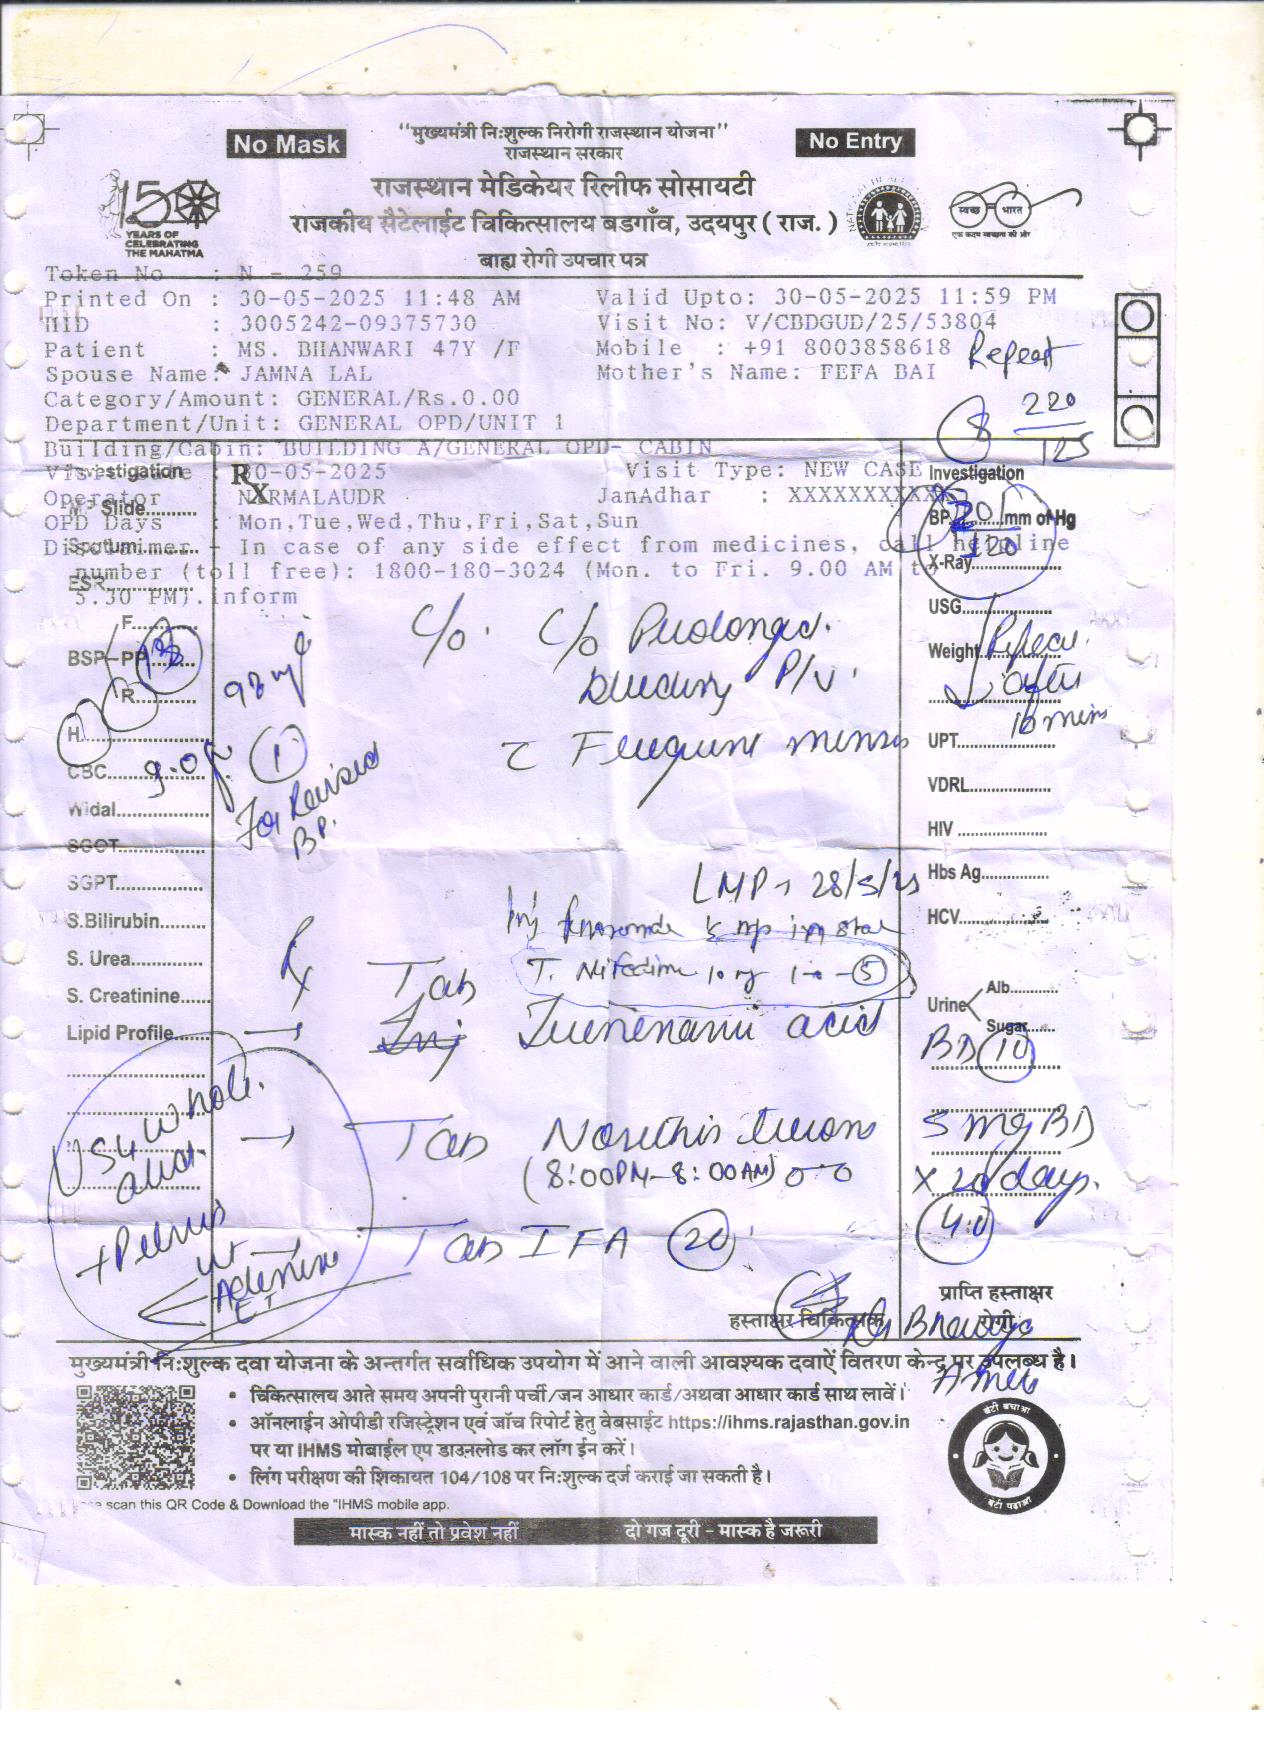 No Mask
"मुख्यमंत्री निःशुल्क निरोगी राजस्थान योजना"
राजस्थान सरकार
No Entry
राजस्थान मेडिकेयर रिलीफ सोसायटी
राजकीय सैटेलाईट चिकित्सालय बडगाँव, उदयपुर ( राज. )
150
YEARS OF
CELEBRATING
THE MAHATMA
स्वच्छ भारत
एक कदम स्वच्छता की ओर
बाह्य रोगी उपचार पत्र
Token No : N - 259
Printed On : 30-05-2025 11:48 AM Valid Upto: 30-05-2025 11:59 PM
HID : 3005242-09375730 Visit No: V/CBDGUD/25/53804
Patient : MS. BHANWARI 47Y /F Mobile : +91 8003858618
Repeat
Spouse Name: JAMNA LAL Mother's Name: FEFA BAI
Category/Amount: GENERAL/Rs.0.00
220
125
Department/Unit: GENERAL OPD/UNIT 1
Building/Cabin: BUILDING A/GENERAL OPD- CABIN
: 30-05-2025 Visit Type: NEW CASE
Investigation
Rx
Investigation
Operator NIRMALAUDR JanAdhar : XXXXXXXXXX
M.P. Slide..........
OPD Days : Mon,Tue,Wed,Thu,Fri,Sat,Sun
BP..........mm of Hg
120
Disclaimer - In case of any side effect from medicines, call helpline
Sputum..........
number (toll free): 1800-180-3024 (Mon. to Fri. 9.00 AM to
X-Ray..........
ESR..........
5.30 PM).inform
F..........
BSP PP..........
R..........
H..........
9.0
CBC..........
Widal..........
SGOT..........
SGPT..........
S.Bilirubin......
S. Urea..........
S. Creatinine......
Lipid Profile.......
USG..........
Weight..........
Repeat after
10 mins
UPT..........
VDRL..........
HIV ..........
Hbs Ag..........
HCV..........
Urine
Alb..........
Sugar......
C/o. C/o Prolonged
bleeding P/V.
Frequent menses
1
For Revised
BP.
LMP → 28/5/25
Inj
T. Nifedipine 10 mg 5
Tab
Inj Tranexamic acid BD 10
Tab Norethisterone 5 mg BD
(8:00PM-8:00AM) X 20 days.
40
Tab IFA 20
USG whole
abd.
+ Pelvis
ET
प्राप्ति हस्ताक्षर
हस्ताक्षर चिकित्सक रोगी
मुख्यमंत्री निःशुल्क दवा योजना के अन्तर्गत सर्वाधिक उपयोग में आने वाली आवश्यक दवाऐं वितरण केन्द्र पर उपलब्ध है।
• चिकित्सालय आते समय अपनी पुरानी पर्ची/जन आधार कार्ड/अथवा आधार कार्ड साथ लावें।
• ऑनलाईन ओपीडी रजिस्ट्रेशन एवं जाँच रिपोर्ट हेतु वेबसाईट https://ihms.rajasthan.gov.in
पर या IHMS मोबाईल एप डाउनलोड कर लॉग ईन करें।
• लिंग परीक्षण की शिकायत 104/108 पर निःशुल्क दर्ज कराई जा सकती है।
बेटी बचाओ
बेटी पढ़ाओ
scan this QR Code & Download the "IHMS mobile app.
मास्क नहीं तो प्रवेश नहीं दो गज दूरी - मास्क है जरूरी